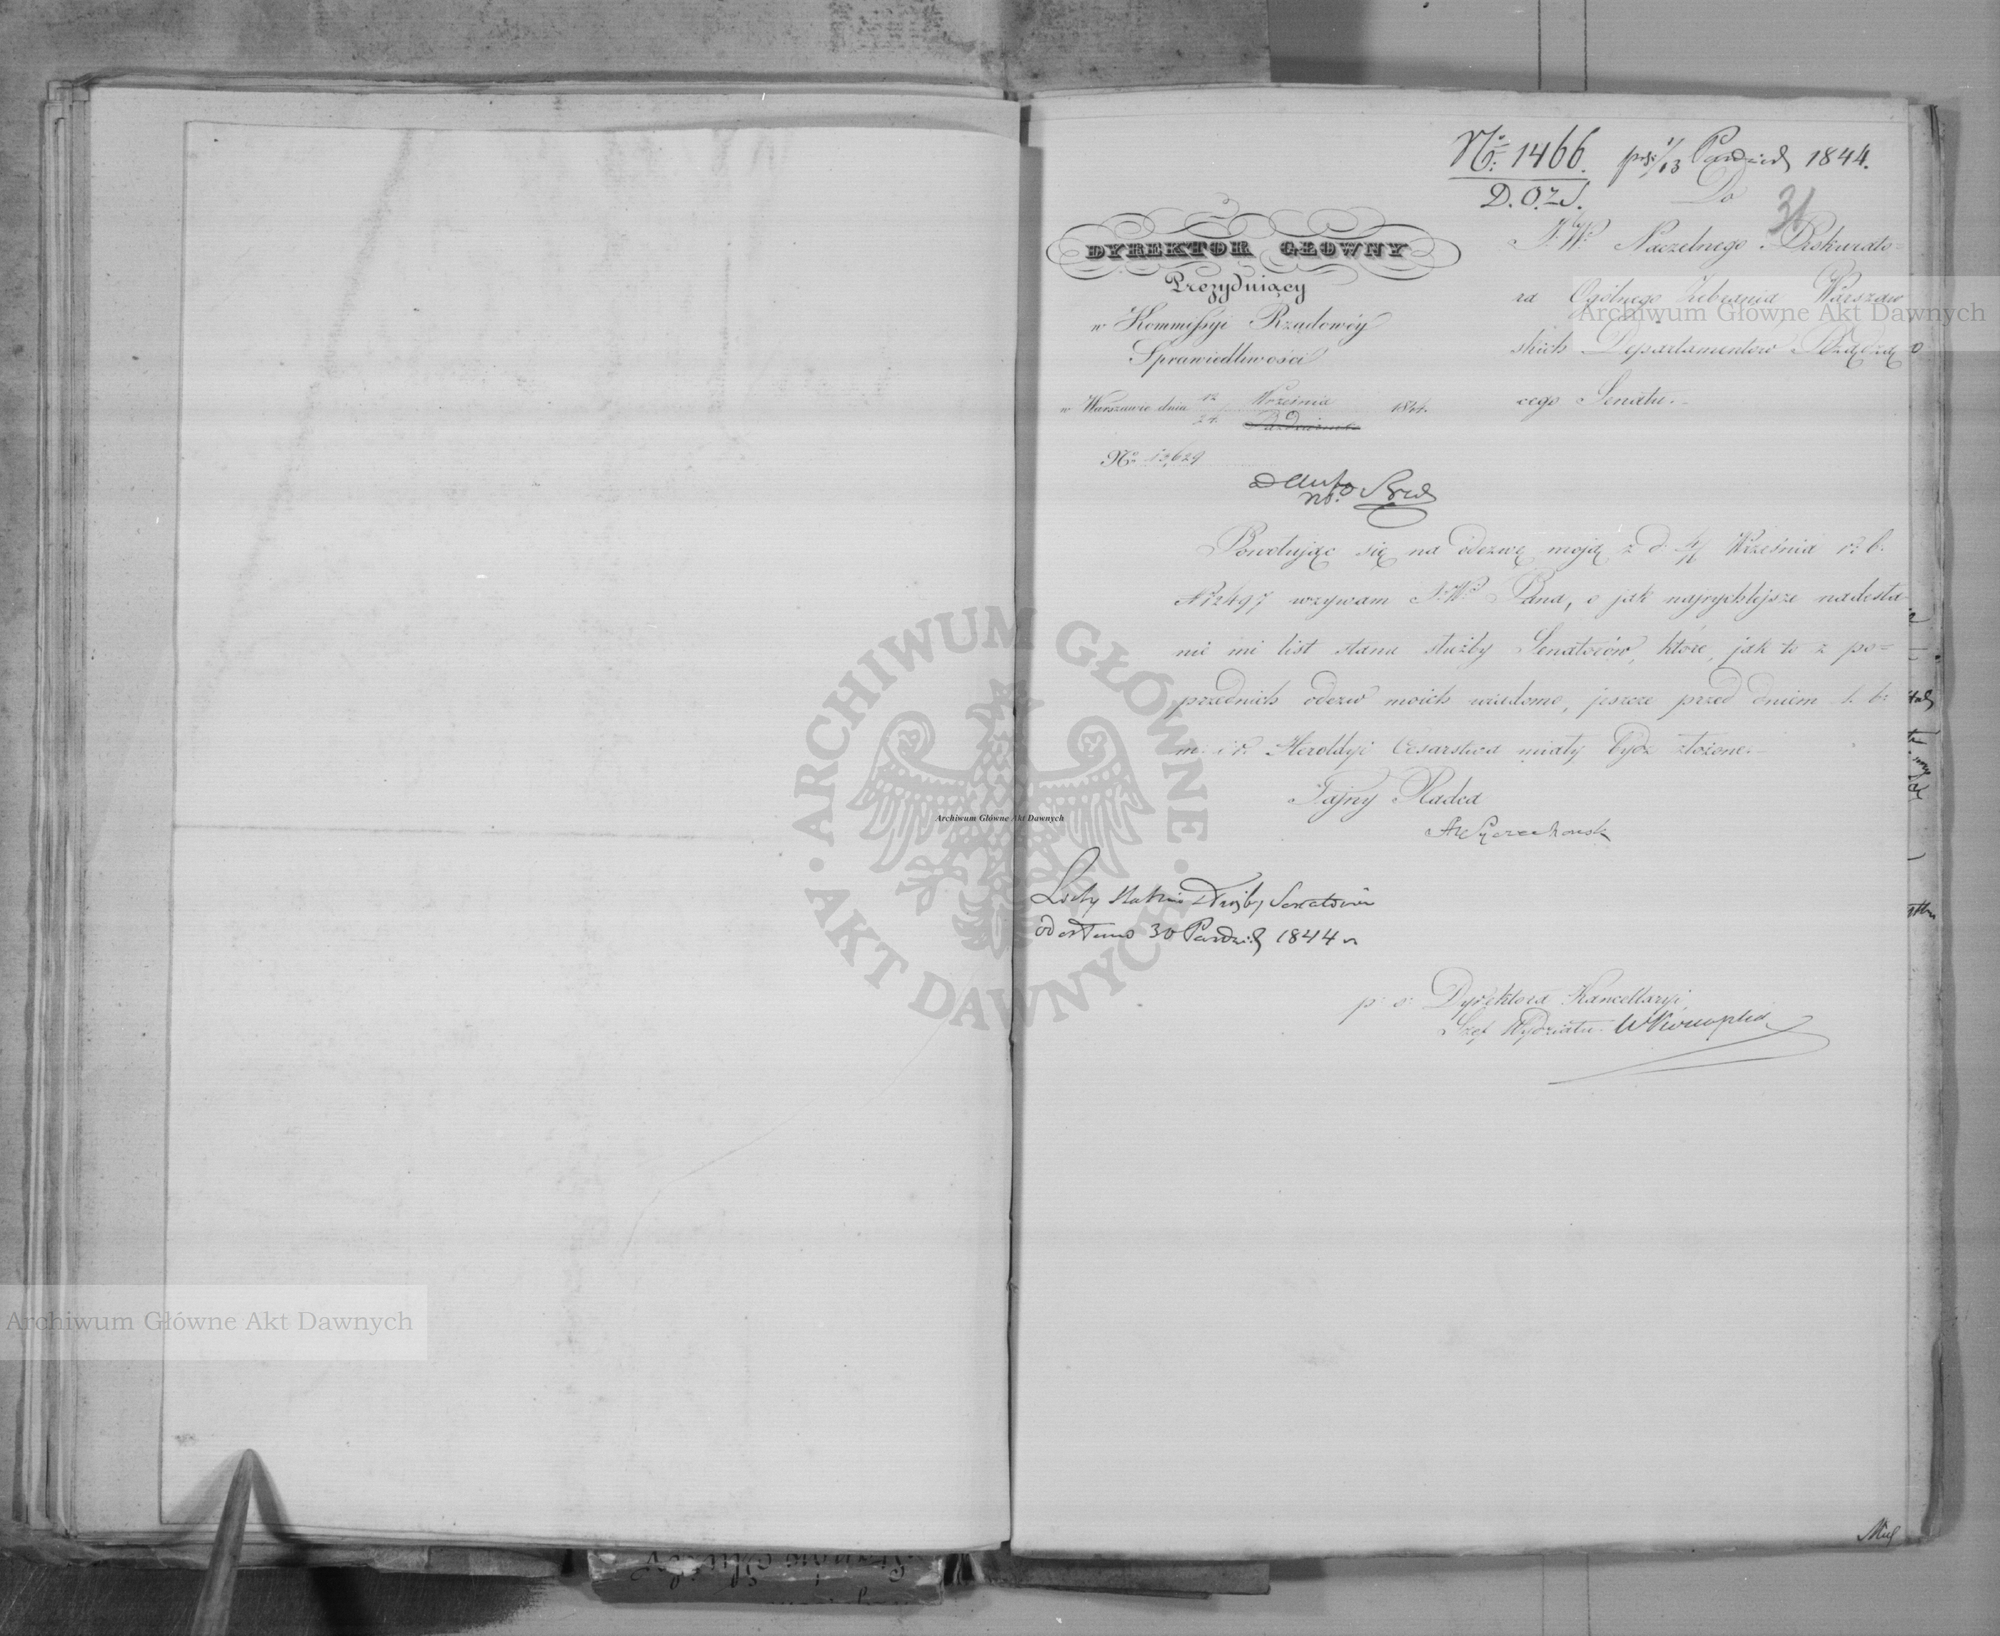 No 1466. 1/13 Paździer 1844.
D. O. Z. S.
Do
31
J. W. Naczelnego Prokurato=
ra Ogólnego Zebrania Warszaw
skich Departamentów Rządzą
cego Senatu.
DYREKTOR GŁOWNY
Prezydujący
w Kommissyi Rządowéy
Sprawiedliwości
w Warszawie dnia 12/24 Września 1844.
Października
No 12,629
Powołując się na odezwę moją z d. 4/16 Września r. b.
N 12497 wzywam J. W. Pana, o jak najrychlejsze nadesła
nie mi list stanu służby Senatorów, które, jak to z po=
przednich odezw moich wiadomo, jeszcze przed dniem 1. b.
m. i r. Heroldyi Cesarstwa miały bydź złożone.
Tajny Radca
Listy Stanu Służby Senatorów
odesłano 30 Paździer 1844 r
p. o. Dyrektora Kancellaryi,
Szef Wydziału
Archiwum Główne Akt Dawnych
Archiwum Główne Akt Dawnych
Archiwum Główne Akt Dawnych
ARCHIWUM GŁÓWNE AKT DAWNYCH